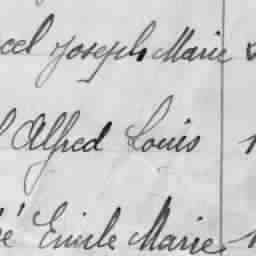 cel Joseph Marie
Alfred Louis
é Emile Marie